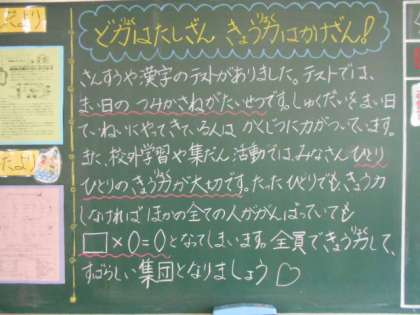 ど力はたしざん きょう力はかけざん!
さんすうや漢字のテストがありました。テストでは、
まい日の つみかさねがたいせつです。しゅくだいをまい日
ていねいにやってきている人は かくじつに力がついています。
また、校外学習や集だん活動では、みなさんひとり
ひとりのきょう力が大切です。たったひとりでもきょう力
しなければ ほかの全ての人ががんばっていても
□×0=0となってしまいます。全員できょう力して、
すばらしい集団となりましょう♡
たより